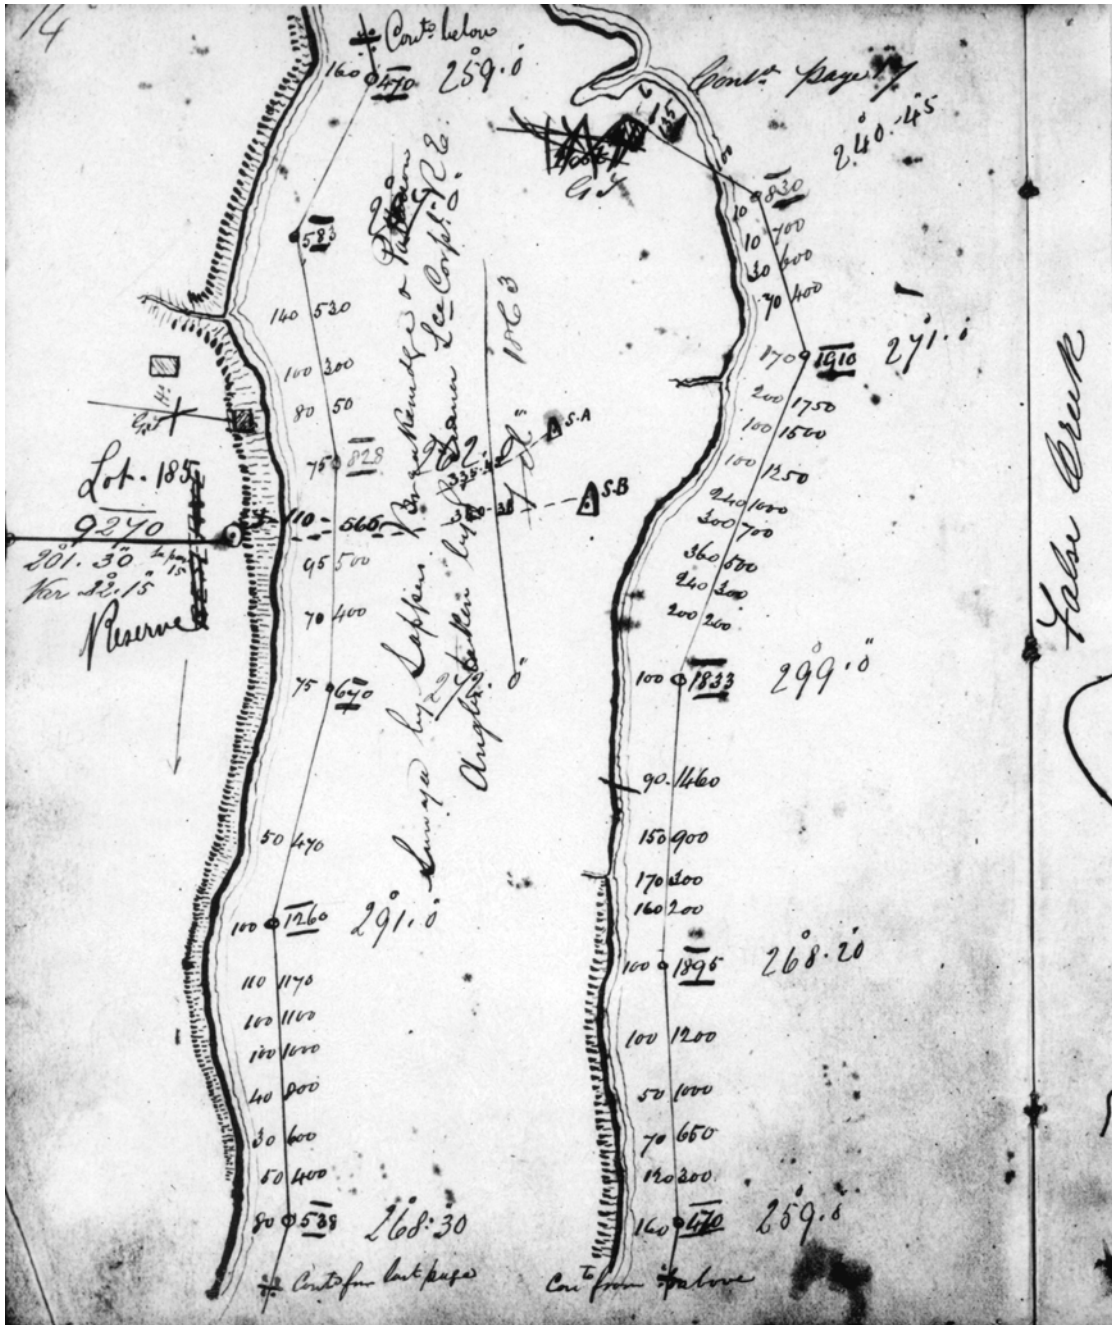 14
Cont.d below
160 470 259.0
583
140 530
100 300
80 50
75 828 272
110 565
95 500
70 400
75 670 272.0
50 470
100 1260 291.0
110 1170
100 1100
100 1000
40 800
30 600
50 400
80 538 268:30
Cont. from last page
Lot. 185
9270
201.30
Var 22.15
Reserve
Survey by Sappers Breakenridge &
Angles taken by Lce Corpl. R.E.
1863
S.A
S.B
Cont.d page 17
G.T
240.45
10 830
10 700
30 600
70 400
170 1910 271.0
200 1750
100 1500
100 1250
240 1000
300 700
360 500
240 300
200 200
100 1833 299.0
90 1460
150 900
170 300
160 200
100 1895 268.20
100 1200
50 1000
70 650
120 300
160 470 259.0
Cont.d from above
False Creek